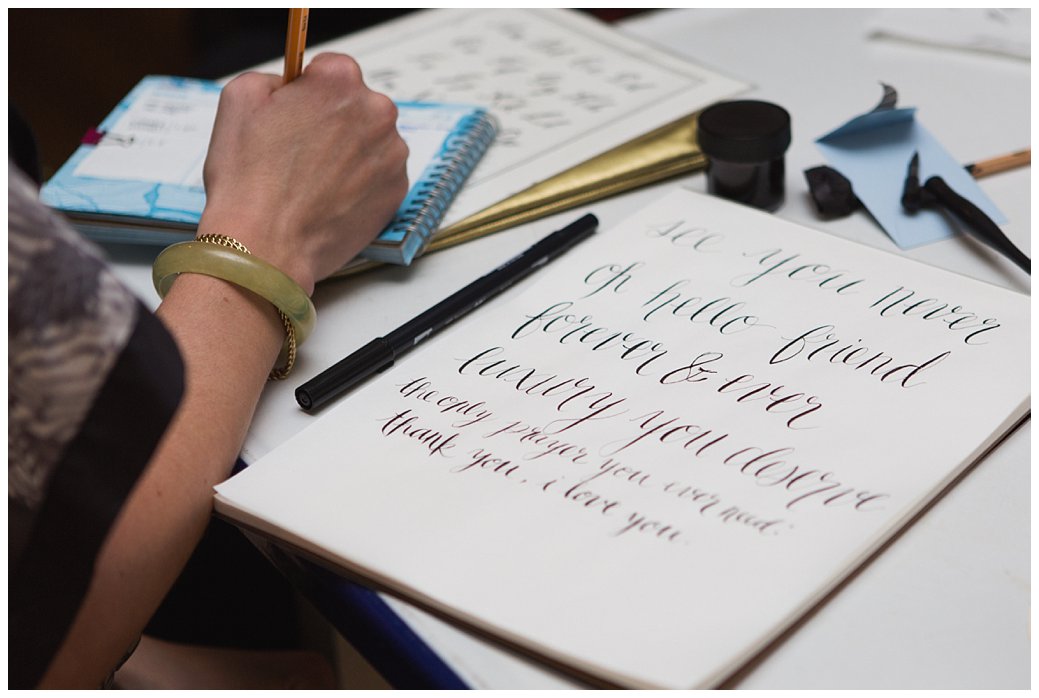 see you never
oh hello friend
forever & ever
luxury you deserve
the only prayer you ever need:
thank you, i love you.